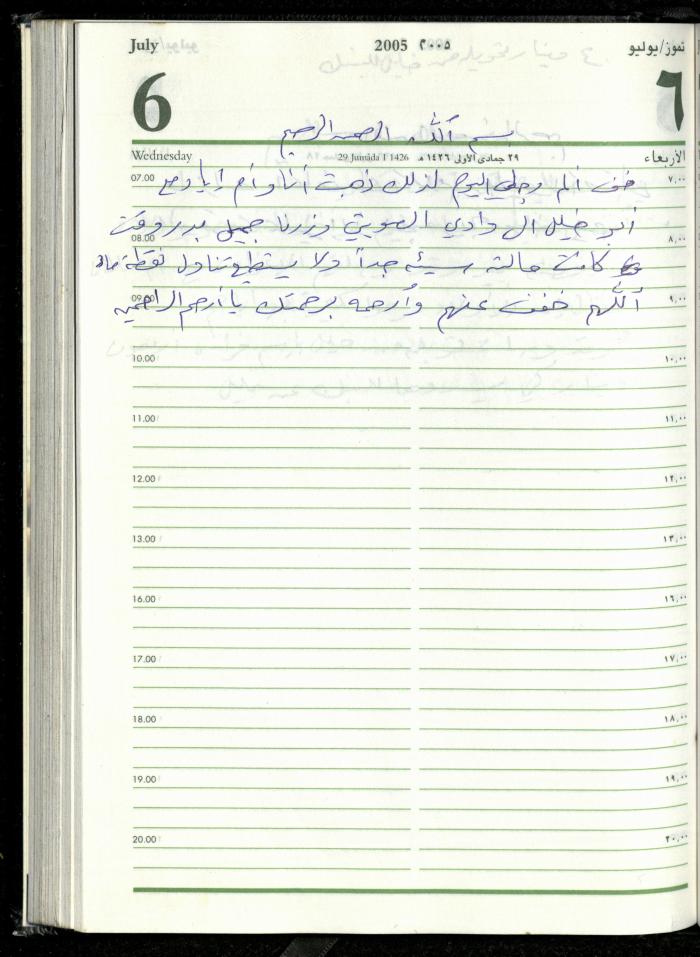 July 2005 ٢٠٠٥ تموز/يوليو
6 ٦
بسم الله الرحمن الرحيم
Wednesday 29 Jumâda I 1426 ٢٩ جمادى الأولى ١٤٢٦ هـ الأربعاء
07.00 خف ألم رجلي اليوم لذلك ذهبت أنا وأم إيا ومع ٧,٠٠
أبو خليل الى وادي وزرنا جميل بدر وقت
08.00 ٨,٠٠
كانت حالته سيئه جداً ولا يستطيع تناول نقطة ماء
09.00 أللهم خفف عنهم وأرحمه برحمتك يا أرحم الراحمين ٩,٠٠
10.00 ١٠,٠٠
11.00 ١١,٠٠
12.00 ١٢,٠٠
13.00 ١٣,٠٠
16.00 ١٦,٠٠
17.00 ١٧,٠٠
18.00 ١٨,٠٠
19.00 ١٩,٠٠
20.00 ٢٠,٠٠